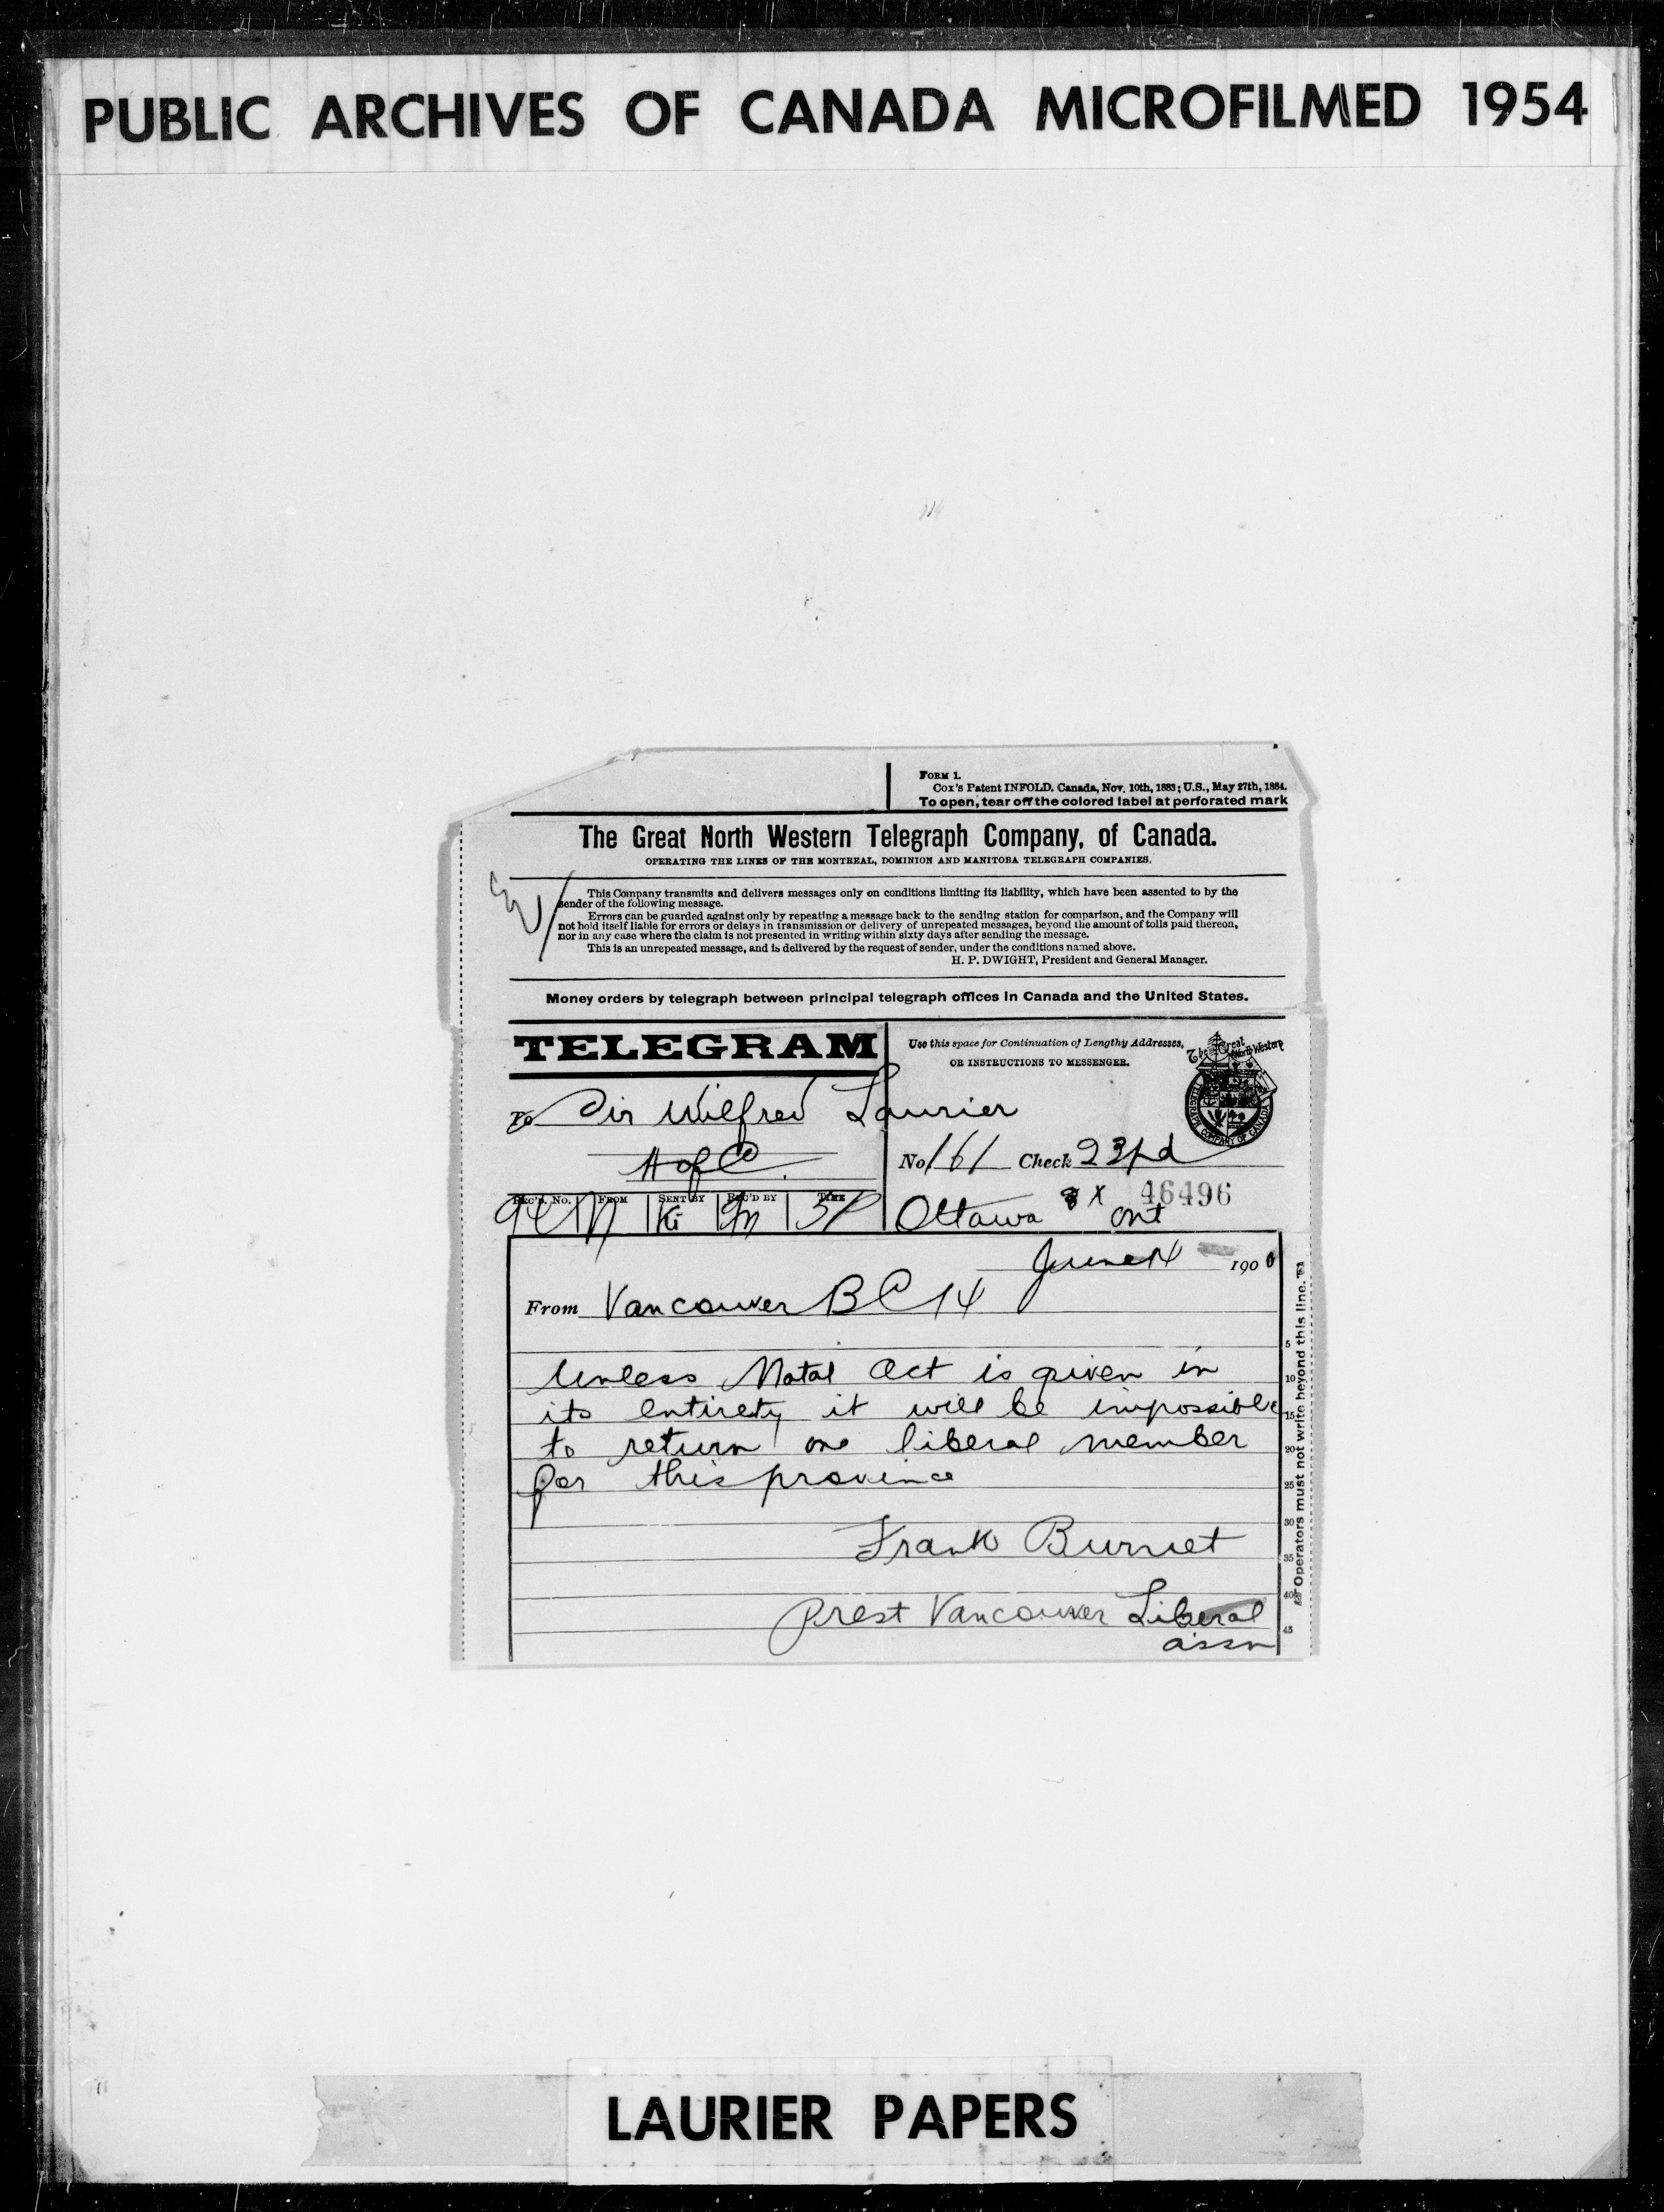 PUBLIC ARCHIVES OF CANADA MICROFILMED 1954
FORM 1.
Cox's Patent INFOLD. Canada, Nov. 10th, 1883; U.S., May 27th, 1884.
To open, tear off the colored label at perforated mark
The Great North Western Telegraph Company, of Canada.
OPERATING THE LINES OF THE MONTREAL, DOMINION AND MANITOBA TELEGRAPH COMPANIES.
This Company transmits and delivers messages only on conditions limiting its liability, which have been assented to by the
sender of the following message.
Errors can be guarded against only by repeating a message back to the sending station for comparison, and the Company will
not hold itself liable for errors or delays in transmission or delivery of unrepeated messages, beyond the amount of tolls paid thereon,
nor in any case where the claim is not presented in writing within sixty days after sending the message.
This is an unrepeated message, and is delivered by the request of sender, under the conditions named above.
H. P. DWIGHT, President and General Manager.
Money orders by telegraph between principal telegraph offices in Canada and the United States.
TELEGRAM
Use this space for Continuation of Lengthy Addresses,
OR INSTRUCTIONS TO MESSENGER.
The Great North Western
TELEGRAPH COMPANY OF CANADA
To Sir Wilfred Laurier
H of C
No 161 Check 23pd
REC'D. No. FROM SENT BY REC'D BY TIME
46496
Ottawa Ont
June 14 1900
From Vancouver BC 14
Unless Natal Act is given in
its entirety it will be impossible
to return one liberal member
for this province
Frank Burnet
Prest Vancouver Liberal
assn
5
10
15
20
25
30
35
40
45
Operators must not write beyond this line.
LAURIER PAPERS